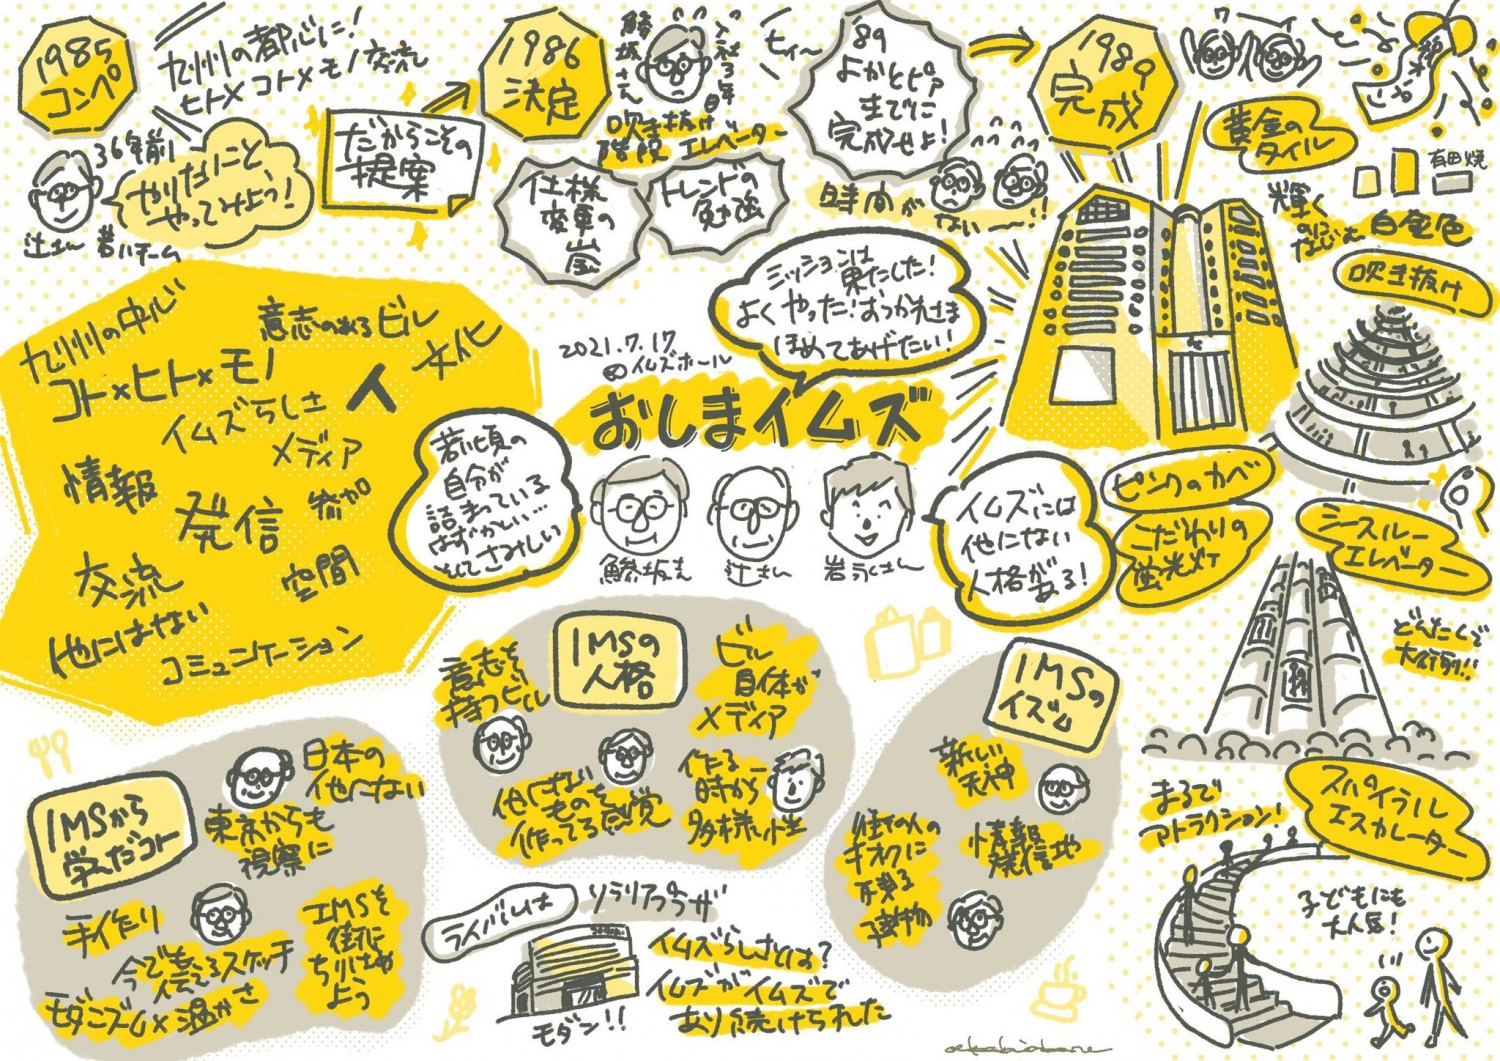 1985
コンペ
九州の都心に!
ヒト×コト×モノ交流
36年前!
やりたいこと、
やってけよう!
辻さん 若いチーム
だからこその
提案
1986
決定
鯵坂さん
入社3年目
吹き抜け
階段 エレベーター
仕様
変更の
嵐
トレンドの
勉強
ヒィ〜
'89
よかとピア
までに
完成せよ!
時間が
ない〜!!
1989
完成
黄金の
タイル
有田焼
輝く
のに
なじむ
白金色
吹き抜け
ミッションは
果たした!
よくやった!おつかれさま
ほめてあげたい!
2021.7.17
@イムズホール
おしまイムズ
九州の中心
意志のあるビル
コト×ヒト×モノ
人
文化
イムズらしさ
メディア
情報
発信
参加
交流
空間
他にはない
コミュニケーション
若い頃の
自分が
詰まっている
はずかしい…
そしてさみしい
鯵坂さん
辻さん
岩永さん
イムズには
他にない
人格が
ある!
ピンクのカベ
こだわりの
蛍光灯
シースルー
エレベーター
どんたくで
大行列!!
IMSの
人格
意志を
持つビル
ビル
自体が
メディア
他にない
ものを
作ってる感覚
作る
時から
多様い性
IMSの
イズム
新しい
天神
情報
発信地
人の
キオクに
残る
建物
IMSから
学んだコト
日本の
他にない
東京からも
視察に
手作り
今でも使えるスケッチ
モダニズム×温かさ
IMSを
街に
ちりばめ
よう
ライバルは
ソラリアプラザ
モダン!!
イムズらしさとは?
イムズがイムズで
あり続けられた
まるで
アトラクション!
スパイラル
エスカレーター
子どもにも
大人気!